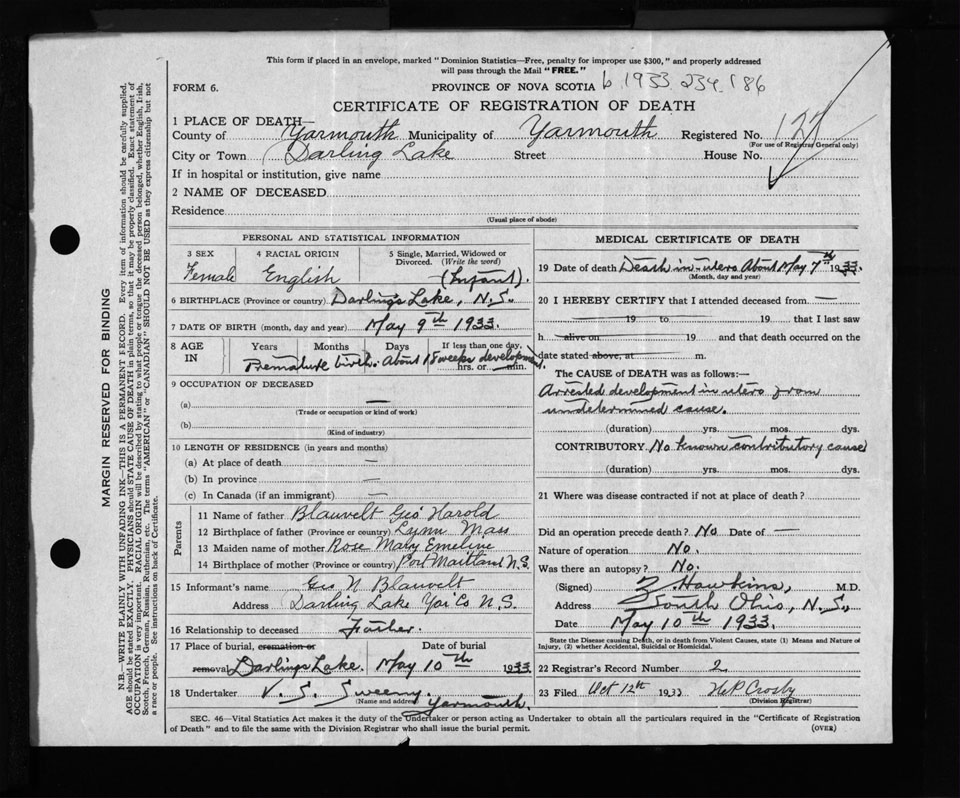 This form if placed in an envelope, marked "Dominion Statistics—Free, penalty for improper use $300," and properly addressed
will pass through the Mail "FREE."
FORM 6.
PROVINCE OF NOVA SCOTIA b 1933 234 186
CERTIFICATE OF REGISTRATION OF DEATH
1 PLACE OF DEATH—
County of Yarmouth Municipality of Yarmouth Registered No. 127
(For use of Registrar General only)
City or Town Darling Lake Street House No.
If in hospital or institution, give name
2 NAME OF DECEASED
Residence
(Usual place of abode)
PERSONAL AND STATISTICAL INFORMATION
3 SEX 4 RACIAL ORIGIN 5 Single, Married, Widowed or
Divorced. (Write the word)
Female English (Infant).
6 BIRTHPLACE (Province or country) Darling's Lake, N.S.
7 DATE OF BIRTH (month, day and year) May 9th 1933.
8 AGE IN Years Months Days If less than one day,
hrs. or min.
Premature birth. About 18 weeks development
9 OCCUPATION OF DECEASED
(a) —
(Trade or occupation or kind of work)
(b)
(Kind of industry)
10 LENGTH OF RESIDENCE (in years and months)
(a) At place of death —
(b) In province —
(c) In Canada (if an immigrant) —
Parents
11 Name of father Blauvelt Geo Harold
12 Birthplace of father (Province or country) Lynn Mass
13 Maiden name of mother Rose Mary Emeline
14 Birthplace of mother (Province or country) Port Maitland N.S.
15 Informant's name Geo H Blauvelt
Address Darling Lake Yar Co N.S.
16 Relationship to deceased Father.
17 Place of burial, cremation or Date of burial
removal Darlings Lake. May 10th 1933
18 Undertaker V. S. Sweeny.
(Name and address) Yarmouth.
MEDICAL CERTIFICATE OF DEATH
19 Date of death Death in-utero About May 7th 1933.
(Month, day and year)
20 I HEREBY CERTIFY that I attended deceased from —
19 to 19 that I last saw
h alive on 19 and that death occurred on the
date stated above, at m.
The CAUSE of DEATH was as follows:—
Arrested development in utero from
undetermined cause.
(duration) yrs. mos. dys.
CONTRIBUTORY. No known contributory cause
(duration) yrs. mos. dys.
21 Where was disease contracted if not at place of death?
Did an operation precede death? No Date of —
Nature of operation No.
Was there an autopsy? No.
(Signed) Z Hawkins, M.D.
Address South Ohio, N.S.
Date May 10th 1933.
State the Disease causing Death, or in death from Violent Causes, state (1) Means and Nature of
Injury, (2) whether Accidental, Suicidal or Homicidal.
22 Registrar's Record Number 2
23 Filed Oct 12th 1933 H P Crosby
(Division Registrar)
SEC. 46—Vital Statistics Act makes it the duty of the Undertaker or person acting as Undertaker to obtain all the particulars required in the "Certificate of Registration
of Death" and to file the same with the Division Registrar who shall issue the burial permit. (OVER)
MARGIN RESERVED FOR BINDING
N.B.—WRITE PLAINLY WITH UNFADING INK—THIS IS A PERMANENT RECORD. Every item of information should be carefully supplied.
AGE should be stated EXACTLY. PHYSICIANS should STATE CAUSE OF DEATH in plain terms, so that it may be properly classified. Exact statement of
OCCUPATION is very important. RACIAL ORIGIN will be described by stating to what people or tongue the deceased person belonged, whether English, Irish,
Scotch, French, German, Russian, Ruthenian, etc. The terms "AMERICAN" or "CANADIAN" SHOULD NOT BE USED as they express citizenship but not
a race or people. See instructions on back of Certificate.